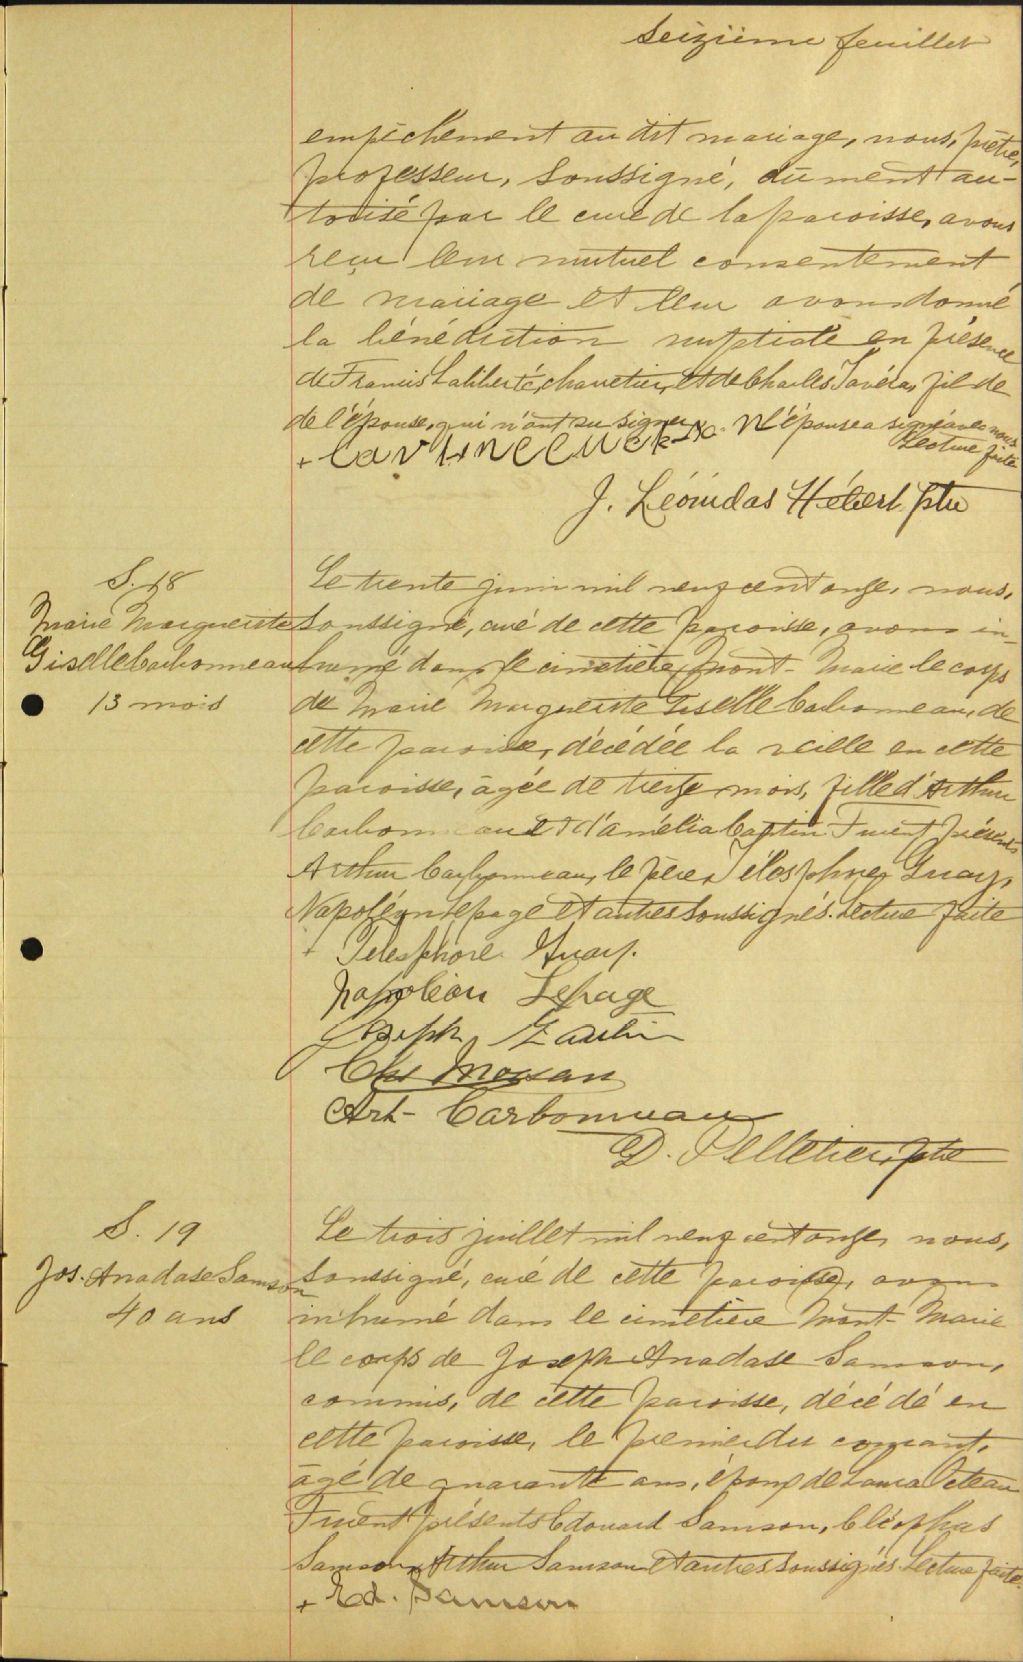 Seizième feuillet
empêchement au dit mariage, nous, prêtre,
professeur, soussigné, dûment au-
torisé par le curé de la paroisse, avons
reçu leur mutuel consentement
de mariage et leur avons donné
la bénédiction nuptiale en présence
de Francis Laliberté, charretier, et de Charles
de l'épouse, qui n'ont su signer. L'épouse a signé avec nous
Lecture faite
+
J. Léonidas Hébert ptre
S. 18
Marie Marguerite
Giselle Carbonneau
13 mois
Le trente juin mil neuf cent onze, nous,
soussigné, curé de cette paroisse, avons in-
humé dans le cimetière Mont-Marie le corps
de Marie Marguerite Giselle Carbonneau, de
cette paroisse, décédée la veille en cette
paroisse, âgée de treize mois, fille d'Arthur
Carbonneau et d'Amélia Cantin. Furent présents
Arthur Carbonneau, le père, Télesphore Guay,
Napoléon Lepage et autres soussignés. Lecture faite
+ Telesphore Guay.
Napoléon Lepage
Joseph
Chs Moisan
Art- Carbonneau
D. Pelletier, ptre
S. 19
Jos. Anadase Samson
40 ans
Le trois juillet mil neuf cent onze, nous,
soussigné, curé de cette paroisse, avons
inhumé dans le cimetière Mont-Marie
le corps de Joseph Anadase Samson,
commis, de cette paroisse, décédé en
cette paroisse, le premier du courant,
âgé de quarante ans, époux de Laura
Furent présents Edouard Samson, Cléophas
Samson, Arthur Samson et autres soussignés. Lecture faite.
+ Ed. Samson